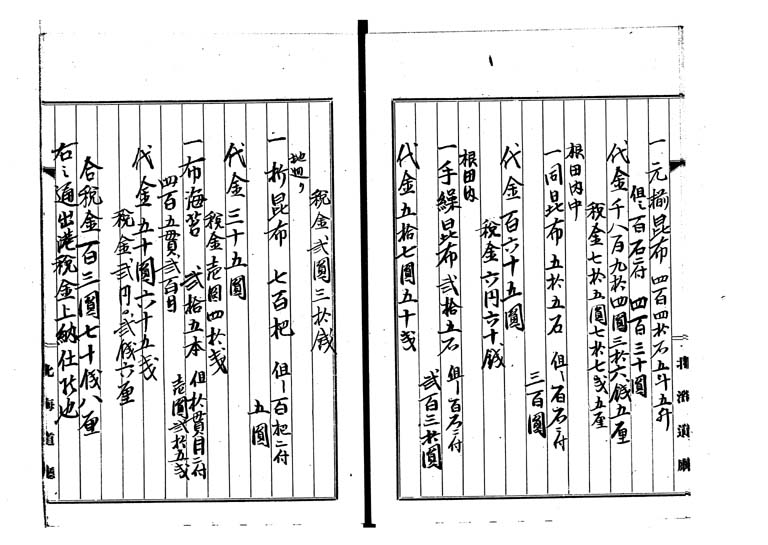 一元揃昆布 四百四拾石五斗五升
但シ百石ニ付 四百三十圓
代金千八百九拾四圓三拾六銭五厘
税金七拾五圓七拾七戔五厘
根田内中
一同昆布 五拾五石 但シ百石ニ付
三百圓
代金百六十五圓
税金六円六十銭
根田内
一手繰昆布 弐拾五石 但シ百石ニ付
弐百三拾圓
代金五拾七圓五十戔
税金弐圓三拾銭
一折昆布 七百把 但シ百把ニ付
五圓
代金三十五圓
税金壱圓四拾戔
一布海苔 弐拾五本 但拾貫目ニ付
四百五貫弐百目 壱圓弐拾五戔
代金五十圓六十五戔
税金弐円〇弐銭六厘
合税金百三圓七十銭八厘
右之通出港税金上納仕候也
北海道廳